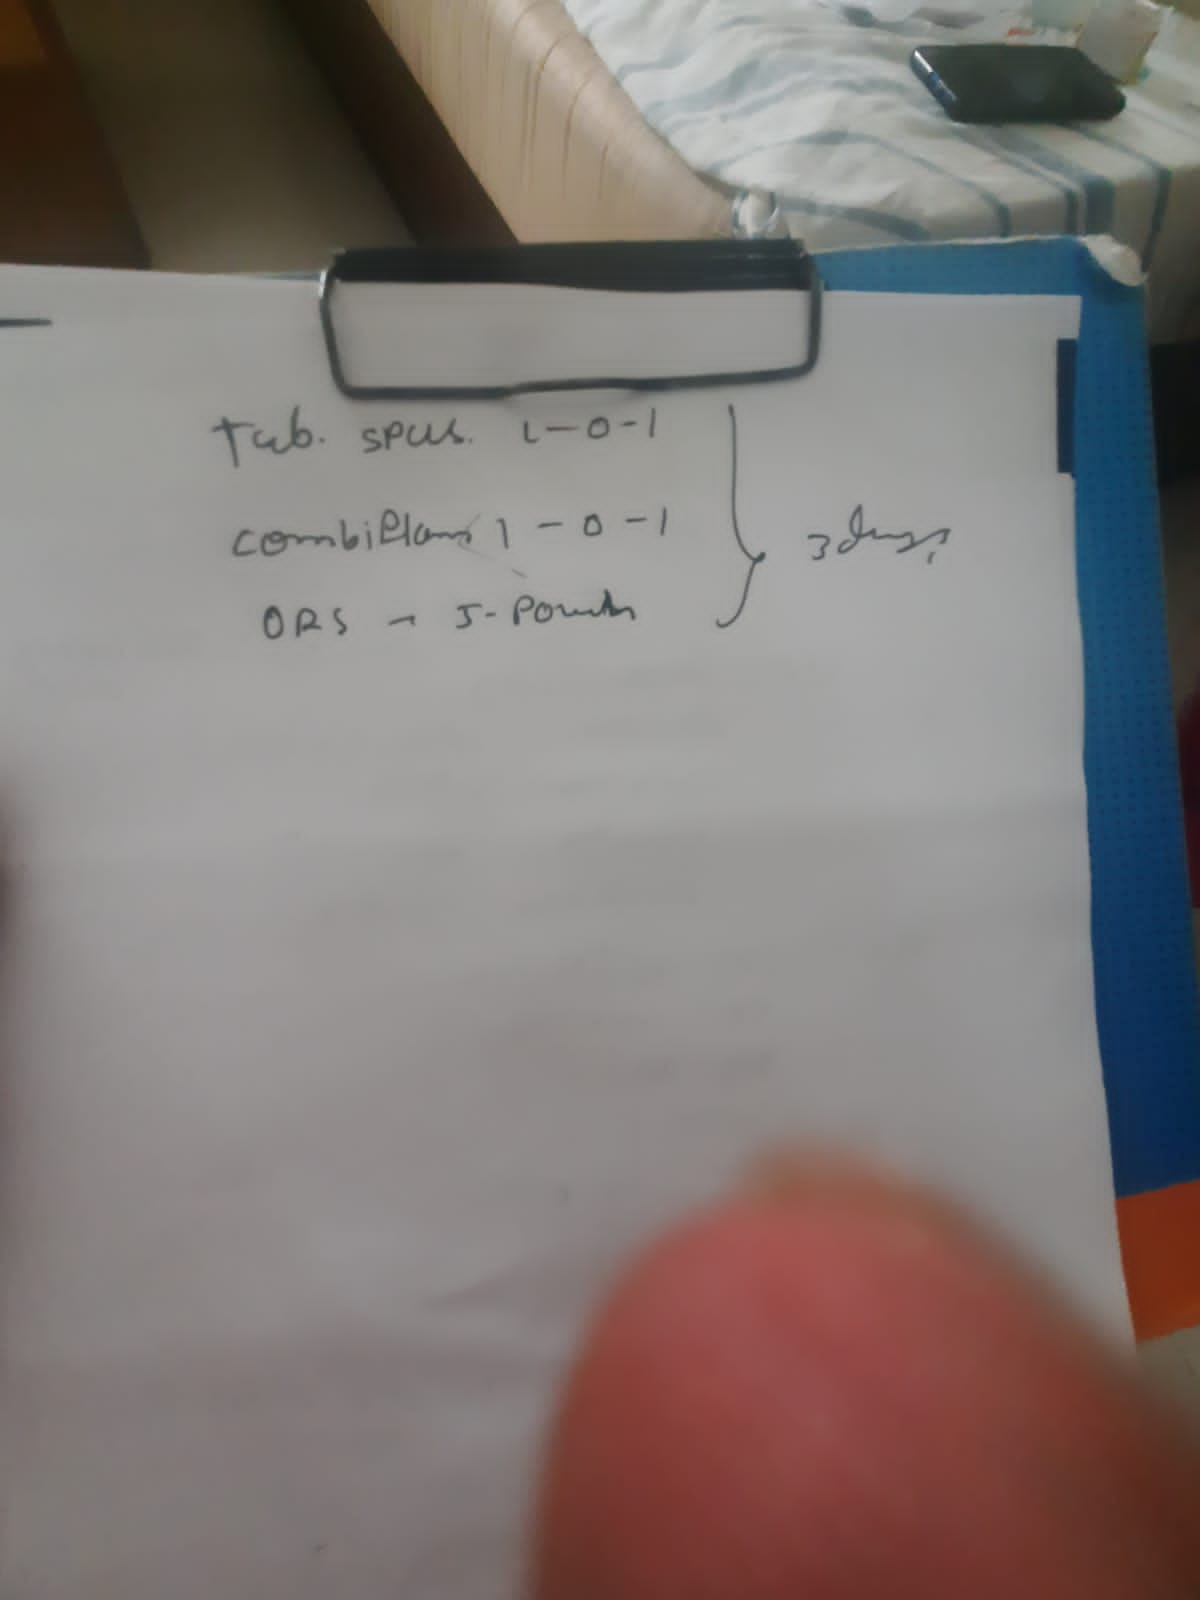 Tab. spas. 1-0-1
combiflam 1-0-1
ORS - 5-Pouch
3 days